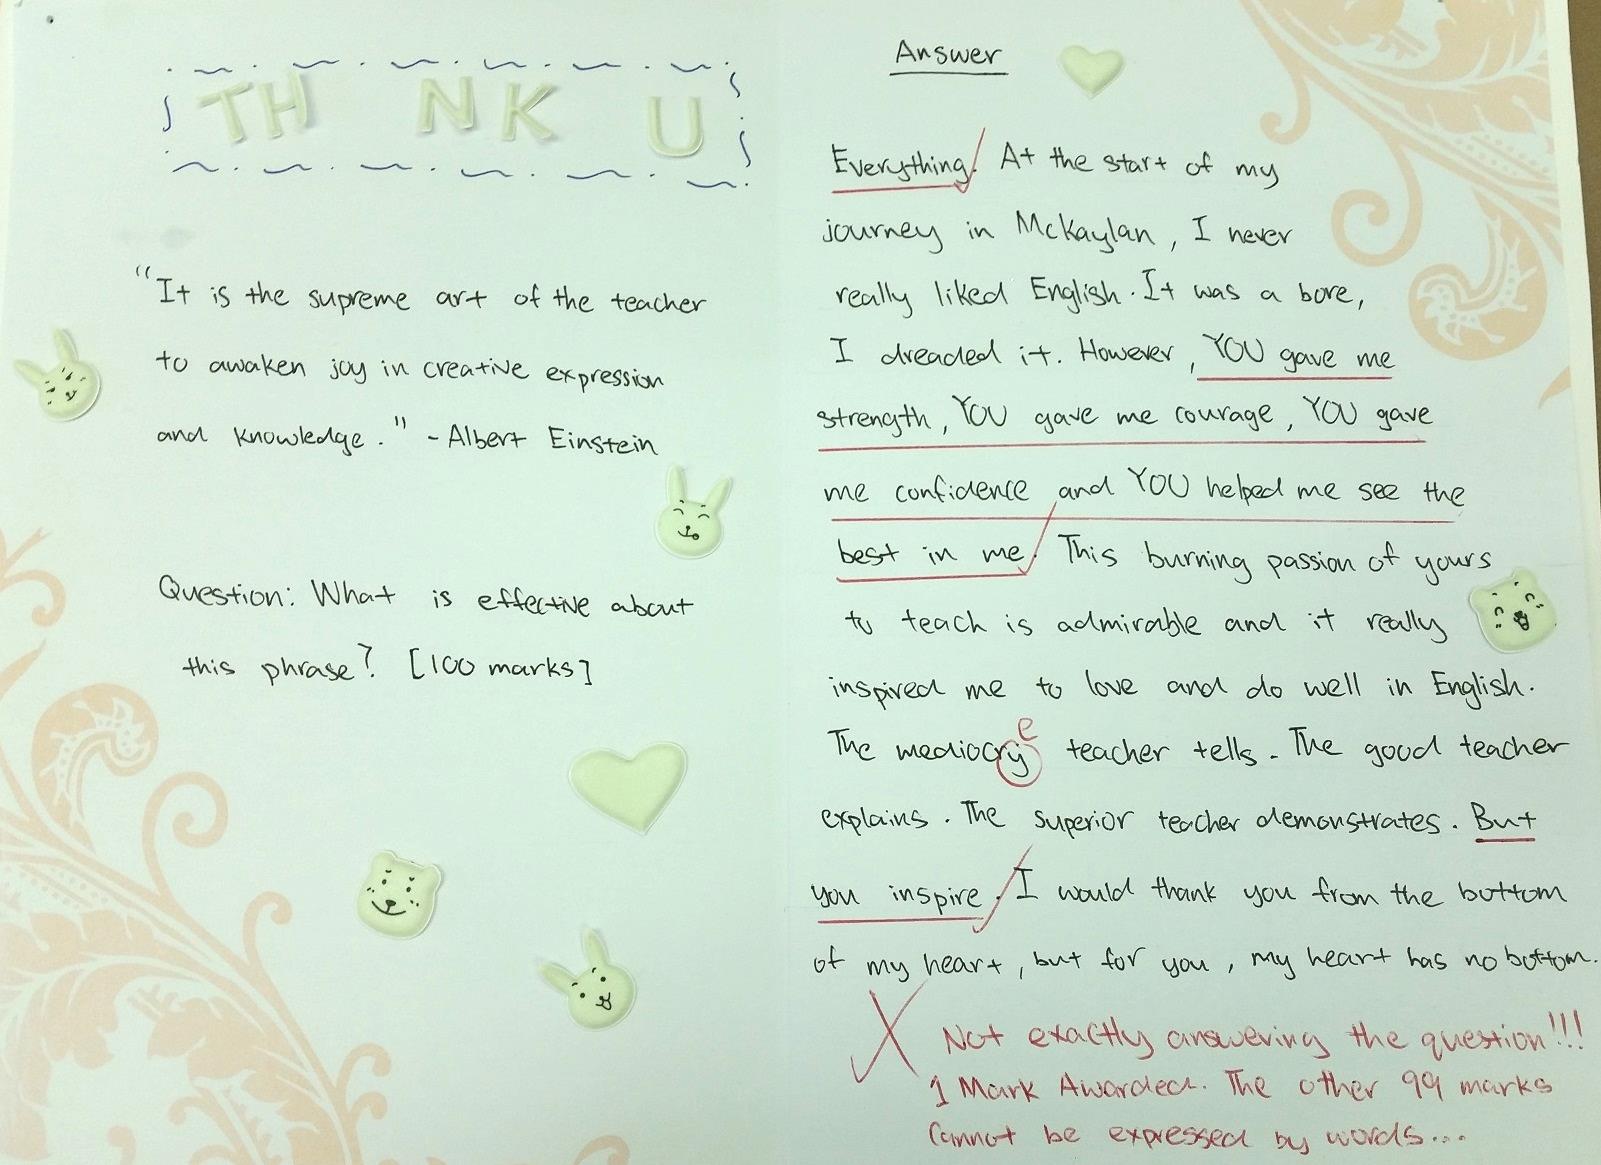 TH NK U
"It is the supreme art of the teacher
to awaken joy in creative expression
and knowledge." - Albert Einstein
Question: What is effective about
this phrase? [100 marks]
Answer
Everything. At the start of my
journey in McKaylan, I never
really liked English. It was a bore,
I dreaded it. However, YOU gave me
strength, YOU gave me courage, YOU gave
me confidence and YOU helped me see the
best in me. This burning passion of yours
to teach is admirable and it really
inspired me to love and do well in English.
e
The mediocry teacher tells. The good teacher
explains. The superior teacher demonstrates. But
you inspire. I would thank you from the bottom
of my heart, but for you, my heart has no bottom.
Not exactly answering the question!!!
1 Mark Awarded. The other 99 marks
cannot be expressed by words...